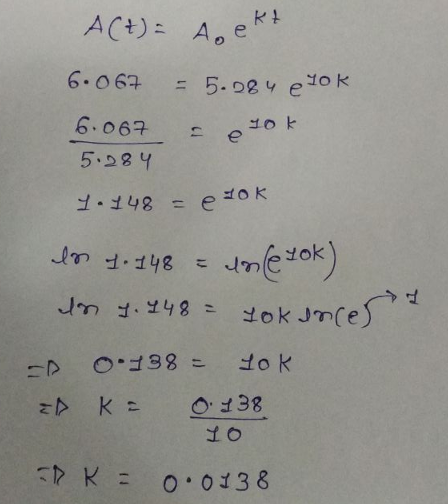 A(t) = A₀ e^{kt}
6.067 = 5.284 e^{10k}
6.067/5.284 = e^{10k}
1.148 = e^{10k}
ln 1.148 = ln(e^{10k})
ln 1.148 = 10k ln(e) → 1
⇒ 0.138 = 10k
⇒ K = 0.138/10
⇒ K = 0.0138